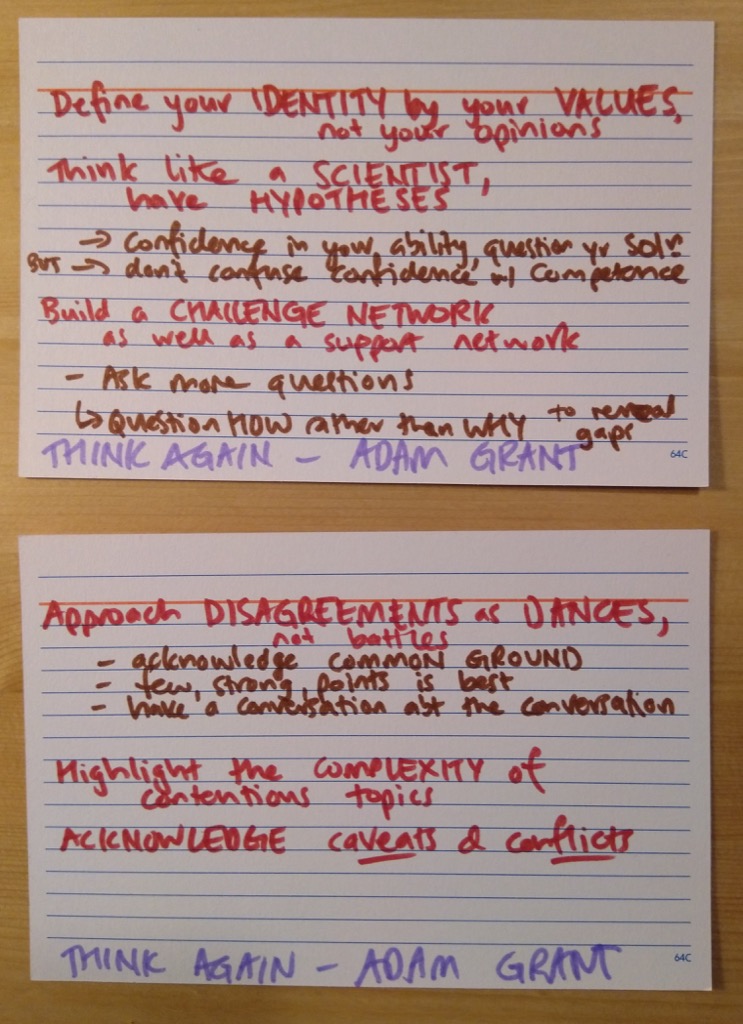 Define your IDENTITY by your VALUES,
not your opinions
Think like a SCIENTIST,
have HYPOTHESES
→ Confidence in your ability, question yr solⁿ.
BUT → don't confuse confidence w/ competence
Build a CHALLENGE NETWORK
as well as a support network
- Ask more questions
↳ Question HOW rather than WHY to reveal
gaps
THINK AGAIN - ADAM GRANT
64C
Approach DISAGREEMENTS as DANCES,
not battles
- acknowledge COMMON GROUND
- few, strong, points is best
- have a conversation abt the conversation
Highlight the COMPLEXITY of
contentious topics
ACKNOWLEDGE caveats & conflicts
THINK AGAIN - ADAM GRANT
64C